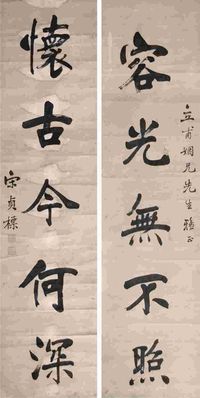 立甫姻兄先生雅正
容光無不照
懷古今何深
宋貞標